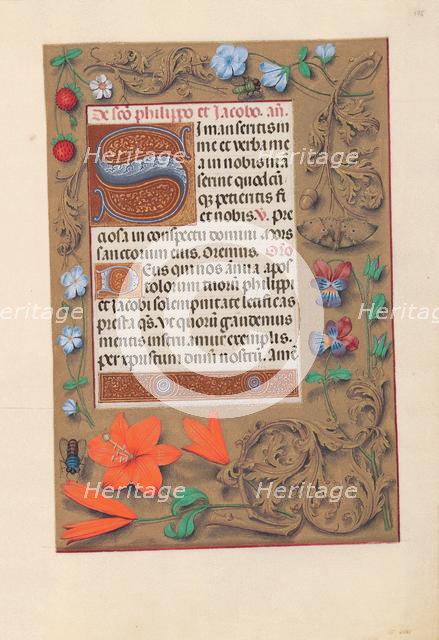 De sco philippo et Jacobo. añ.
Si manseritis in
me et verba mea
in nobis ma
serint quodcu
q petieritis fi
et nobis. V. Pre
ciosa in conspectu domini. Mors
sanctorum eius. Oremus. Oro
Deus qui nos annua apos
tolorum tuorum philippi
et Jacobi solempnitate letificas
presta qs. Vt quorum gaudemus
meritis instruamur exemplis.
per xpistum dnum nostrum. Ame
Heritage Heritage Heritage
Heritage Heritage Heritage
Heritage Heritage Heritage